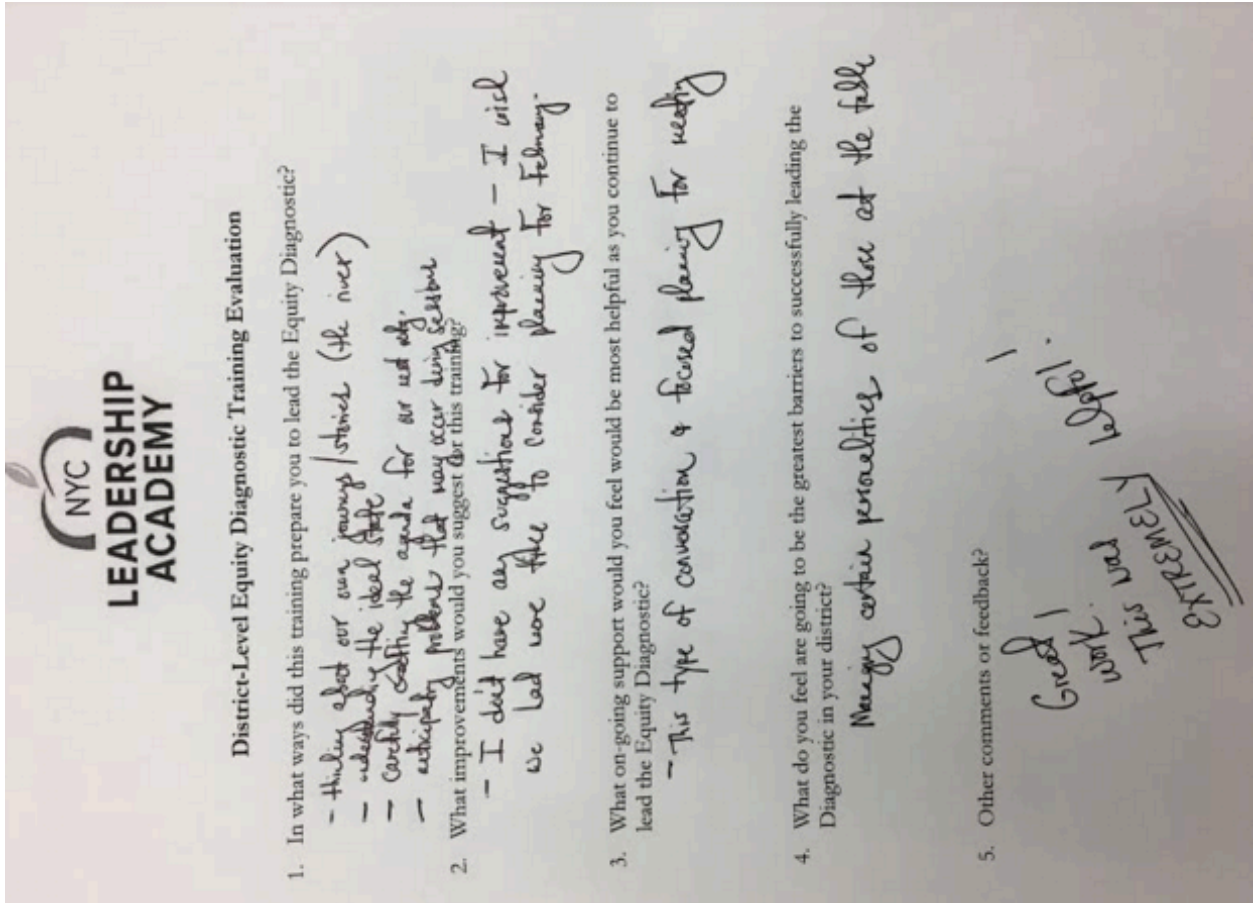 NYC
LEADERSHIP
ACADEMY
District-Level Equity Diagnostic Training Evaluation
1. In what ways did this training prepare you to lead the Equity Diagnostic?
- thinking about our own journeys/stories (the river)
- understanding the ideal state
- carefully crafting the agenda for our next mtg.
- anticipating problems that may occur during sessions
2. What improvements would you suggest for this training?
- I don't have any suggestions for improvement - I wish
we had more time to consider planning for February.
3. What on-going support would you feel would be most helpful as you continue to
lead the Equity Diagnostic?
- This type of conversation & focused planning for meeting
4. What do you feel are going to be the greatest barriers to successfully leading the
Diagnostic in your district?
Managing certain personalities of those at the table
5. Other comments or feedback?
Great!
work.
This was helpful!
EXTREMELY